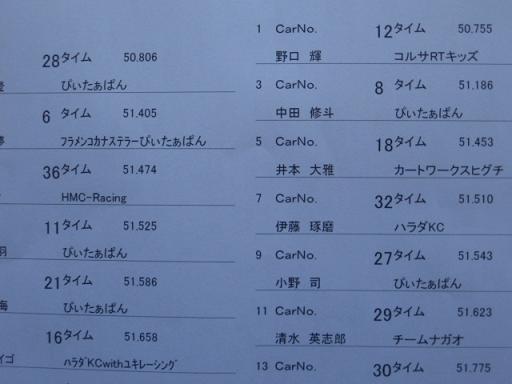 28 タイム 50.806
ぴいたぁぱん
6 タイム 51.405
フラメンコカナステラーぴいたぁぱん
36 タイム 51.474
HMC-Racing
11 タイム 51.525
羽 ぴいたぁぱん
21 タイム 51.586
海 ぴいたぁぱん
16 タイム 51.658
イゴ ハラダKCwithユキレーシング
1 CarNo. 12 タイム 50.755
野口 輝 コルサRTキッズ
3 CarNo. 8 タイム 51.186
中田 修斗 ぴいたぁぱん
5 CarNo. 18 タイム 51.453
井本 大雅 カートワークスヒグチ
7 CarNo. 32 タイム 51.510
伊藤 琢磨 ハラダKC
9 CarNo. 27 タイム 51.543
小野 司 ぴいたぁぱん
11 CarNo. 29 タイム 51.623
清水 英志郎 チームナガオ
13 CarNo. 30 タイム 51.775